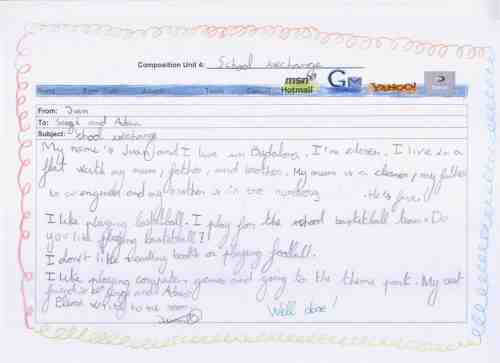 Composition Unit 4: School exchange
msn Hotmail GM YAHOO!
Home Tools
From: Juan
To: and Adam
Subject: School exchange
My name is Juan and I live in Badalona. I'm eleven. I live in a
flat with my mum, father, and brother. My mum is a cleaner, my father
is an engineer and my brother is in the nursery. He's five
I like playing basketball. I play for the school basketball team. Do
you like playing basketball?
I don't like reading books or playing football.
I like playing computer games and going to the theme park. My best
and
Please write to me soon
Well done!